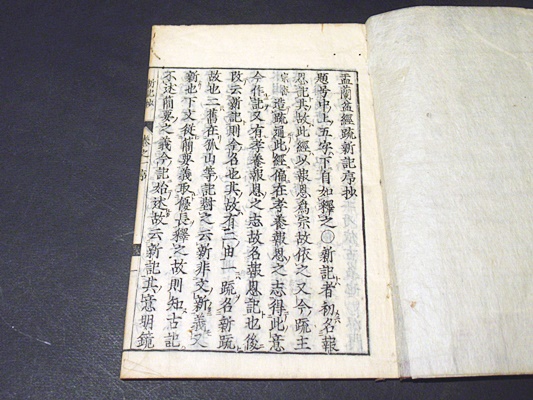 盂蘭盆經疏新記序抄
題号中上五字下自如釋之○新記者初名報
恩記其故此經以報恩爲宗故依之又今疏主
宗密造疏通此經偏在孝養報恩之志得此意
今作記又有孝養報恩之志故名報恩記也後
改云新記則今名也其故有二由一疏名新疏
故也二舊在孤山等記對之云新非文新義又
新也下文從簡要義取極長釋之故則知古記
不述簡要之義今記始述故云新記其意明鏡
新記抄 卷之一 序